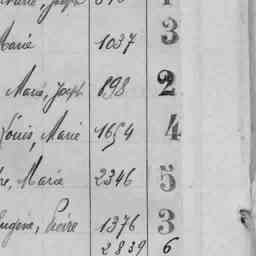 Marie 1037 3
Marie, Joseph 898 2
Louis, Marie 1654 4
Marie 2346 5
Eugène, Pierre 1376 3
2839 6